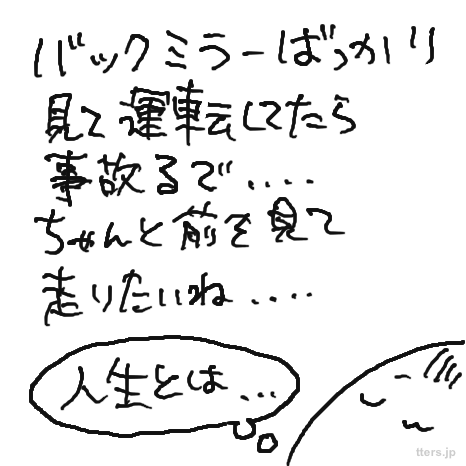 バックミラーばっかり
見て運転してたら
事故るで....
ちゃんと前を見て
走りたいね....
人生とは...
tters.jp